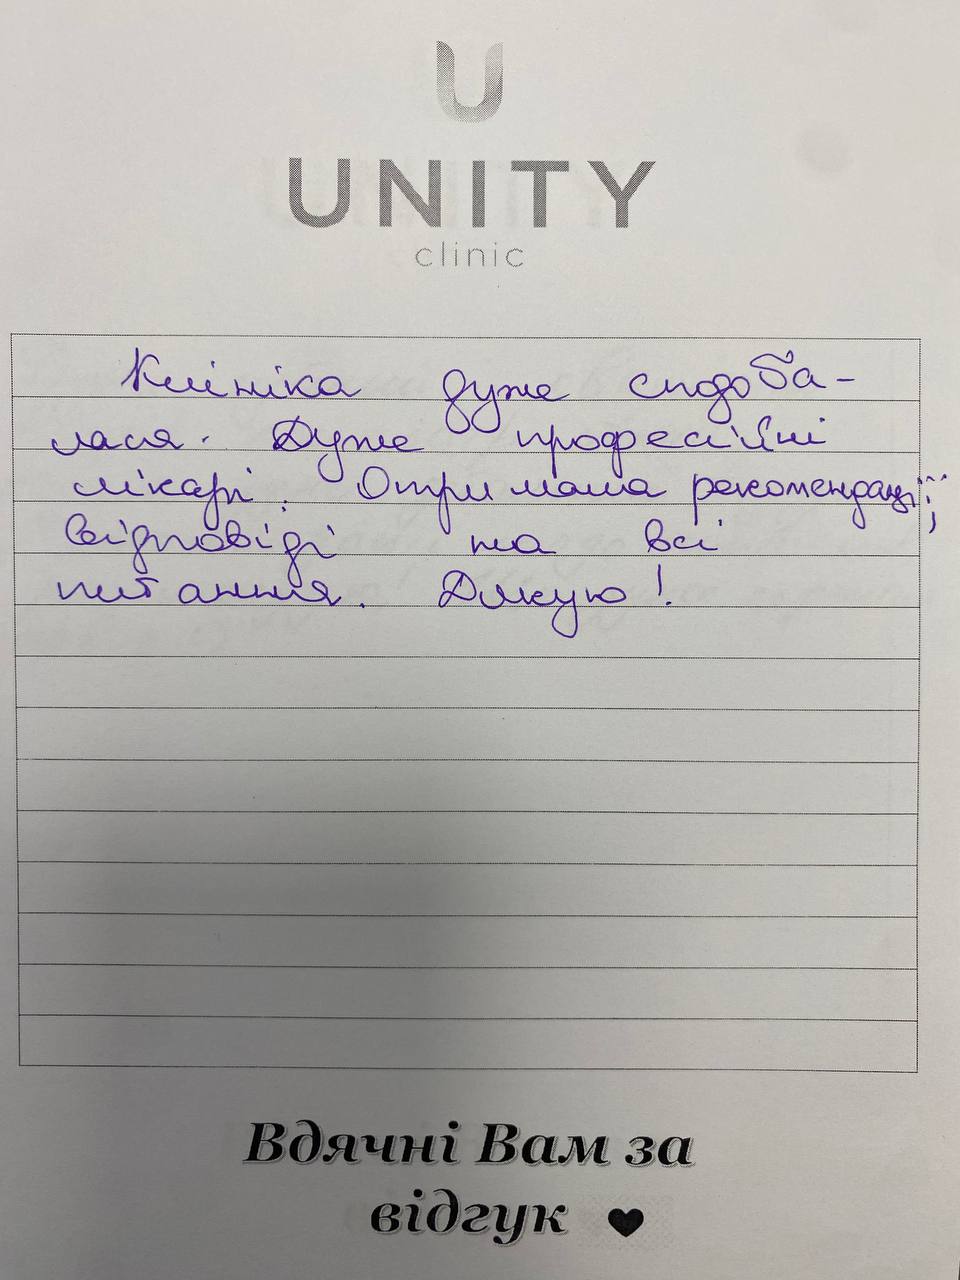 U
UNITY
clinic
Клініка дуже сподоба-
лася. Дуже професійні
лікарі. Отримала рекомендації,
відповіді на всі
питання. Дякую!
Вдячні Вам за
відгук ♥